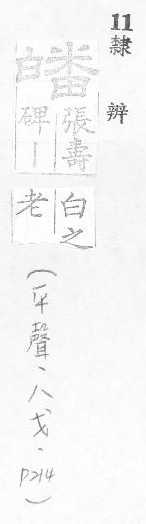 11 隸辨
皤
張壽
碑丨
白之
老
(平聲、八戈、P214)